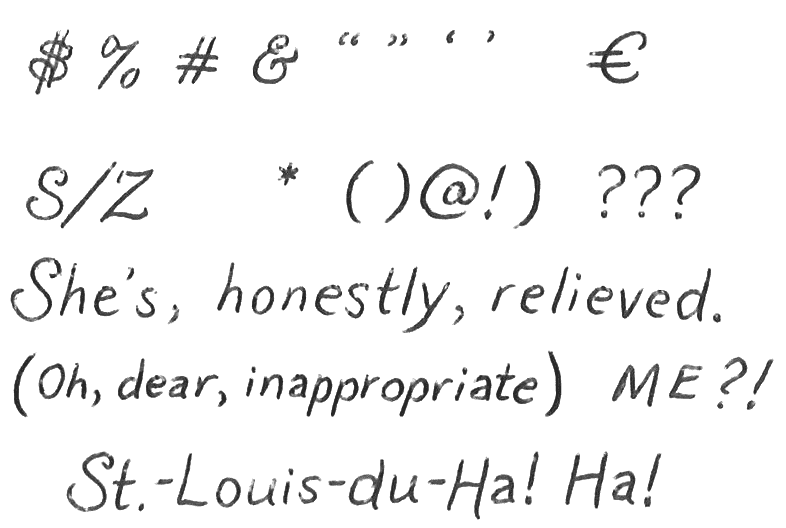 $ % # & “ ” ‘ ’ €
S/Z * ( )@!) ???
She's, honestly, relieved.
(Oh, dear, inappropriate) ME?!
St.-Louis-du-Ha! Ha!